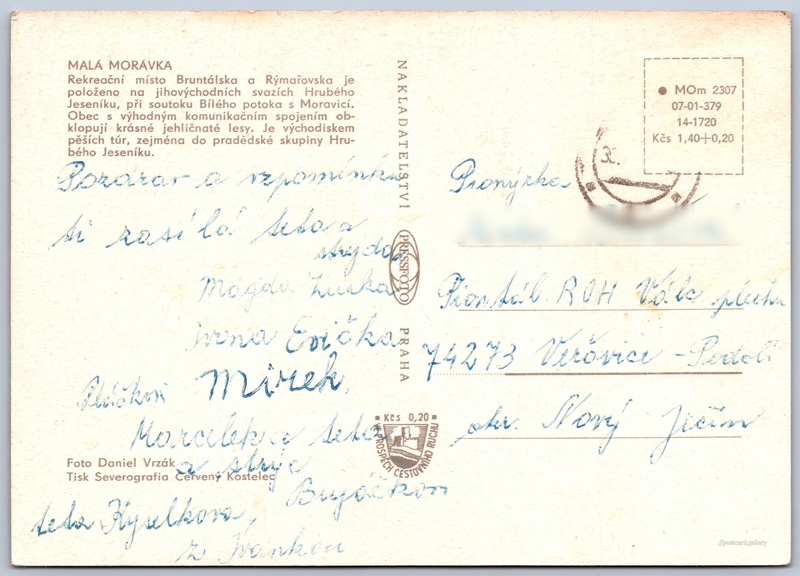 MALÁ MORÁVKA
Rekreační místo Bruntálska a Rýmařovska je
položeno na jihovýchodních svazích Hrubého
Jeseníku, při soutoku Bílého potoka s Moravicí.
Obec s výhodným komunikačním spojením ob-
klopují krásné jehličnaté lesy. Je východiskem
pěších túr, zejména do pradědské skupiny Hru-
bého Jeseníku.
Pozdrav a vzpomínku
ti zasílá teta a
strýda
Magda Zuzka
Ivona Evička
Mirek,
Marcelka teta
a strýc
teta Kyselkova,
z Ivankou
Foto Daniel Vrzák
Tisk Severografia Červený Kostelec
NAKLADATELSTVÍ
PRESSFOTO
PRAHA
Kčs 0,20
VE PROSPĚCH CESTOVNÍHO RUCHU
MOm 2307
07-01-379
14-1720
Kčs 1,40+0,20
Pionýrka
Pion. táb. ROH Válc. plechu
74273 Veřovice - Podolí
okr. Nový Jičín
@postcard.gallery